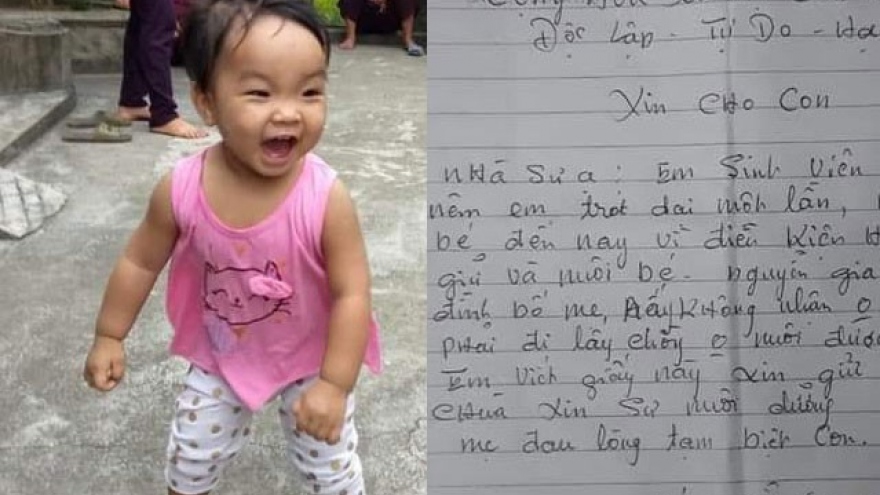 Độc Lập - Tự Do - Hạ
Xin CHO Con
NHÀ Sư ạ: Em Sinh Viên
nên em trót dại một lần,
bé đến nay vì điều Kiện
giữ và nuôi bé. nguyên gia
đình bố mẹ, ấy Không nhân
phải đi lấy chồng o nuôi được
Em Viết giấy này xin gửi
CHùa Xin Sư nuôi dưỡng
mẹ đau lòng tạm biệt Con.